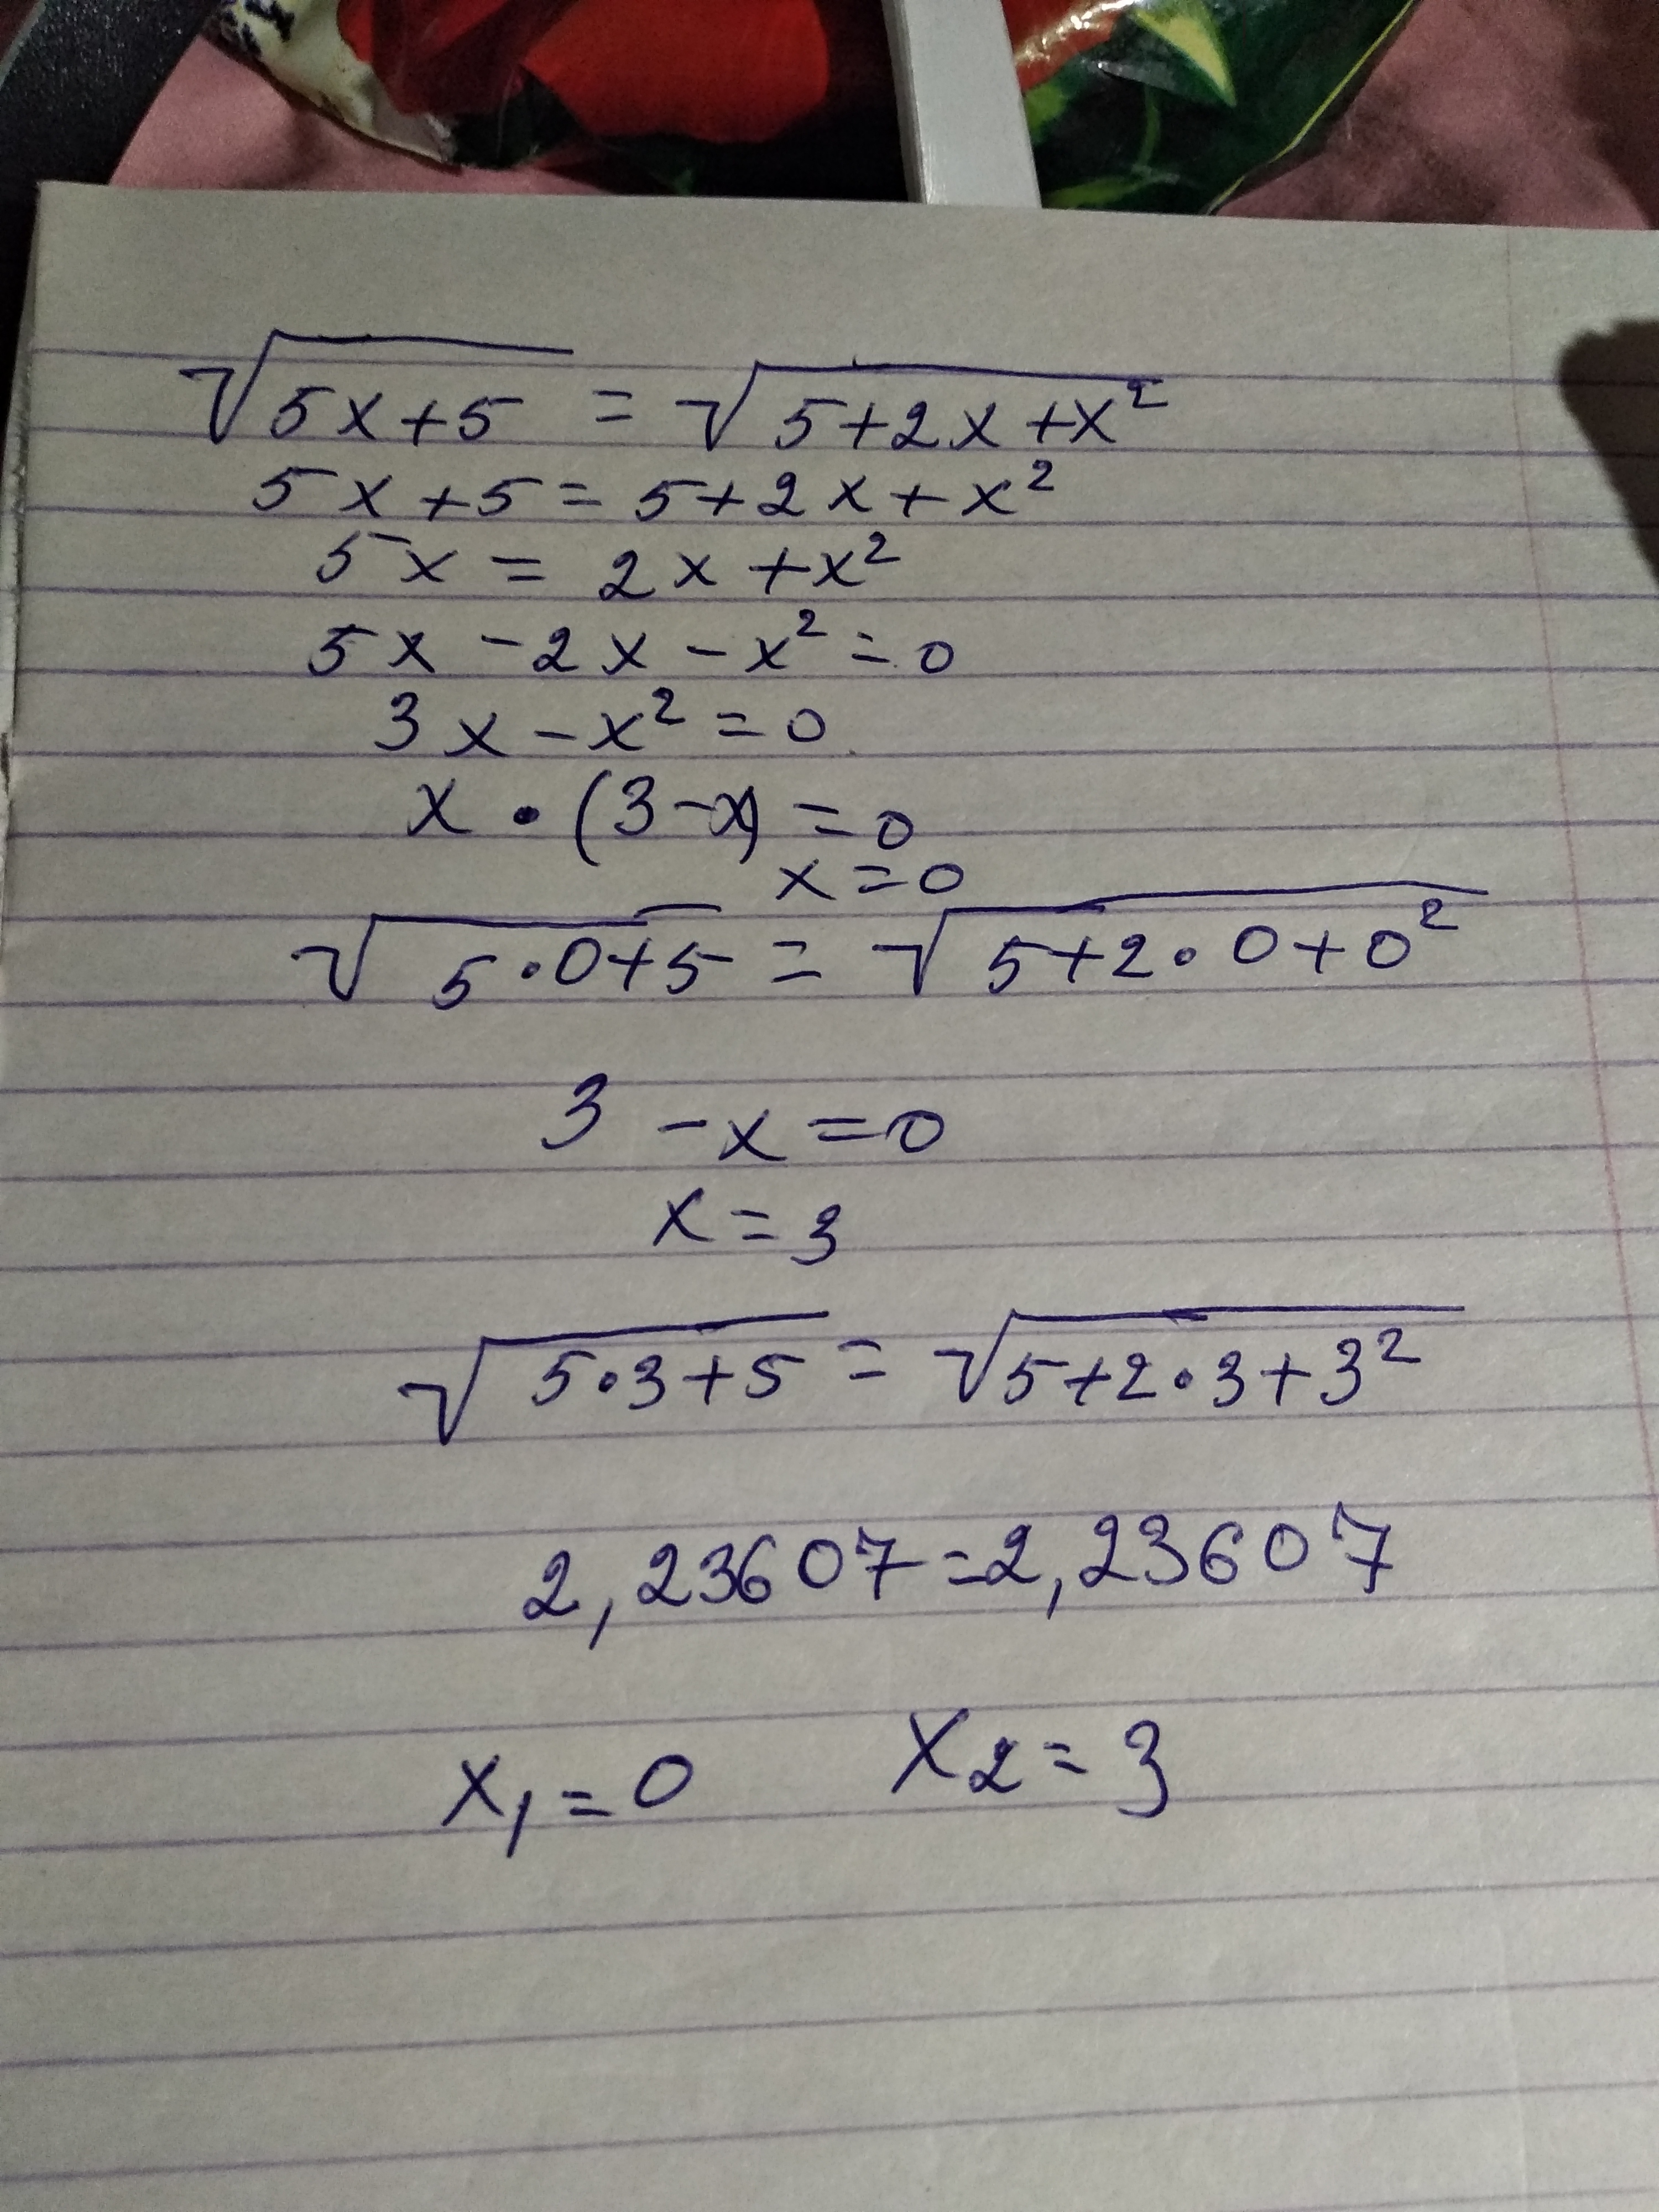 √(5x+5) = √(5+2x+x²)
5x+5=5+2x+x²
5x = 2x+x²
5x-2x-x²=0
3x-x²=0
x·(3-x)=0
x=0
√(5·0+5) = √(5+2·0+0²)
3-x=0
x=3
√(5·3+5) = √(5+2·3+3²)
2,23607=2,23607
x₁=0 x₂=3